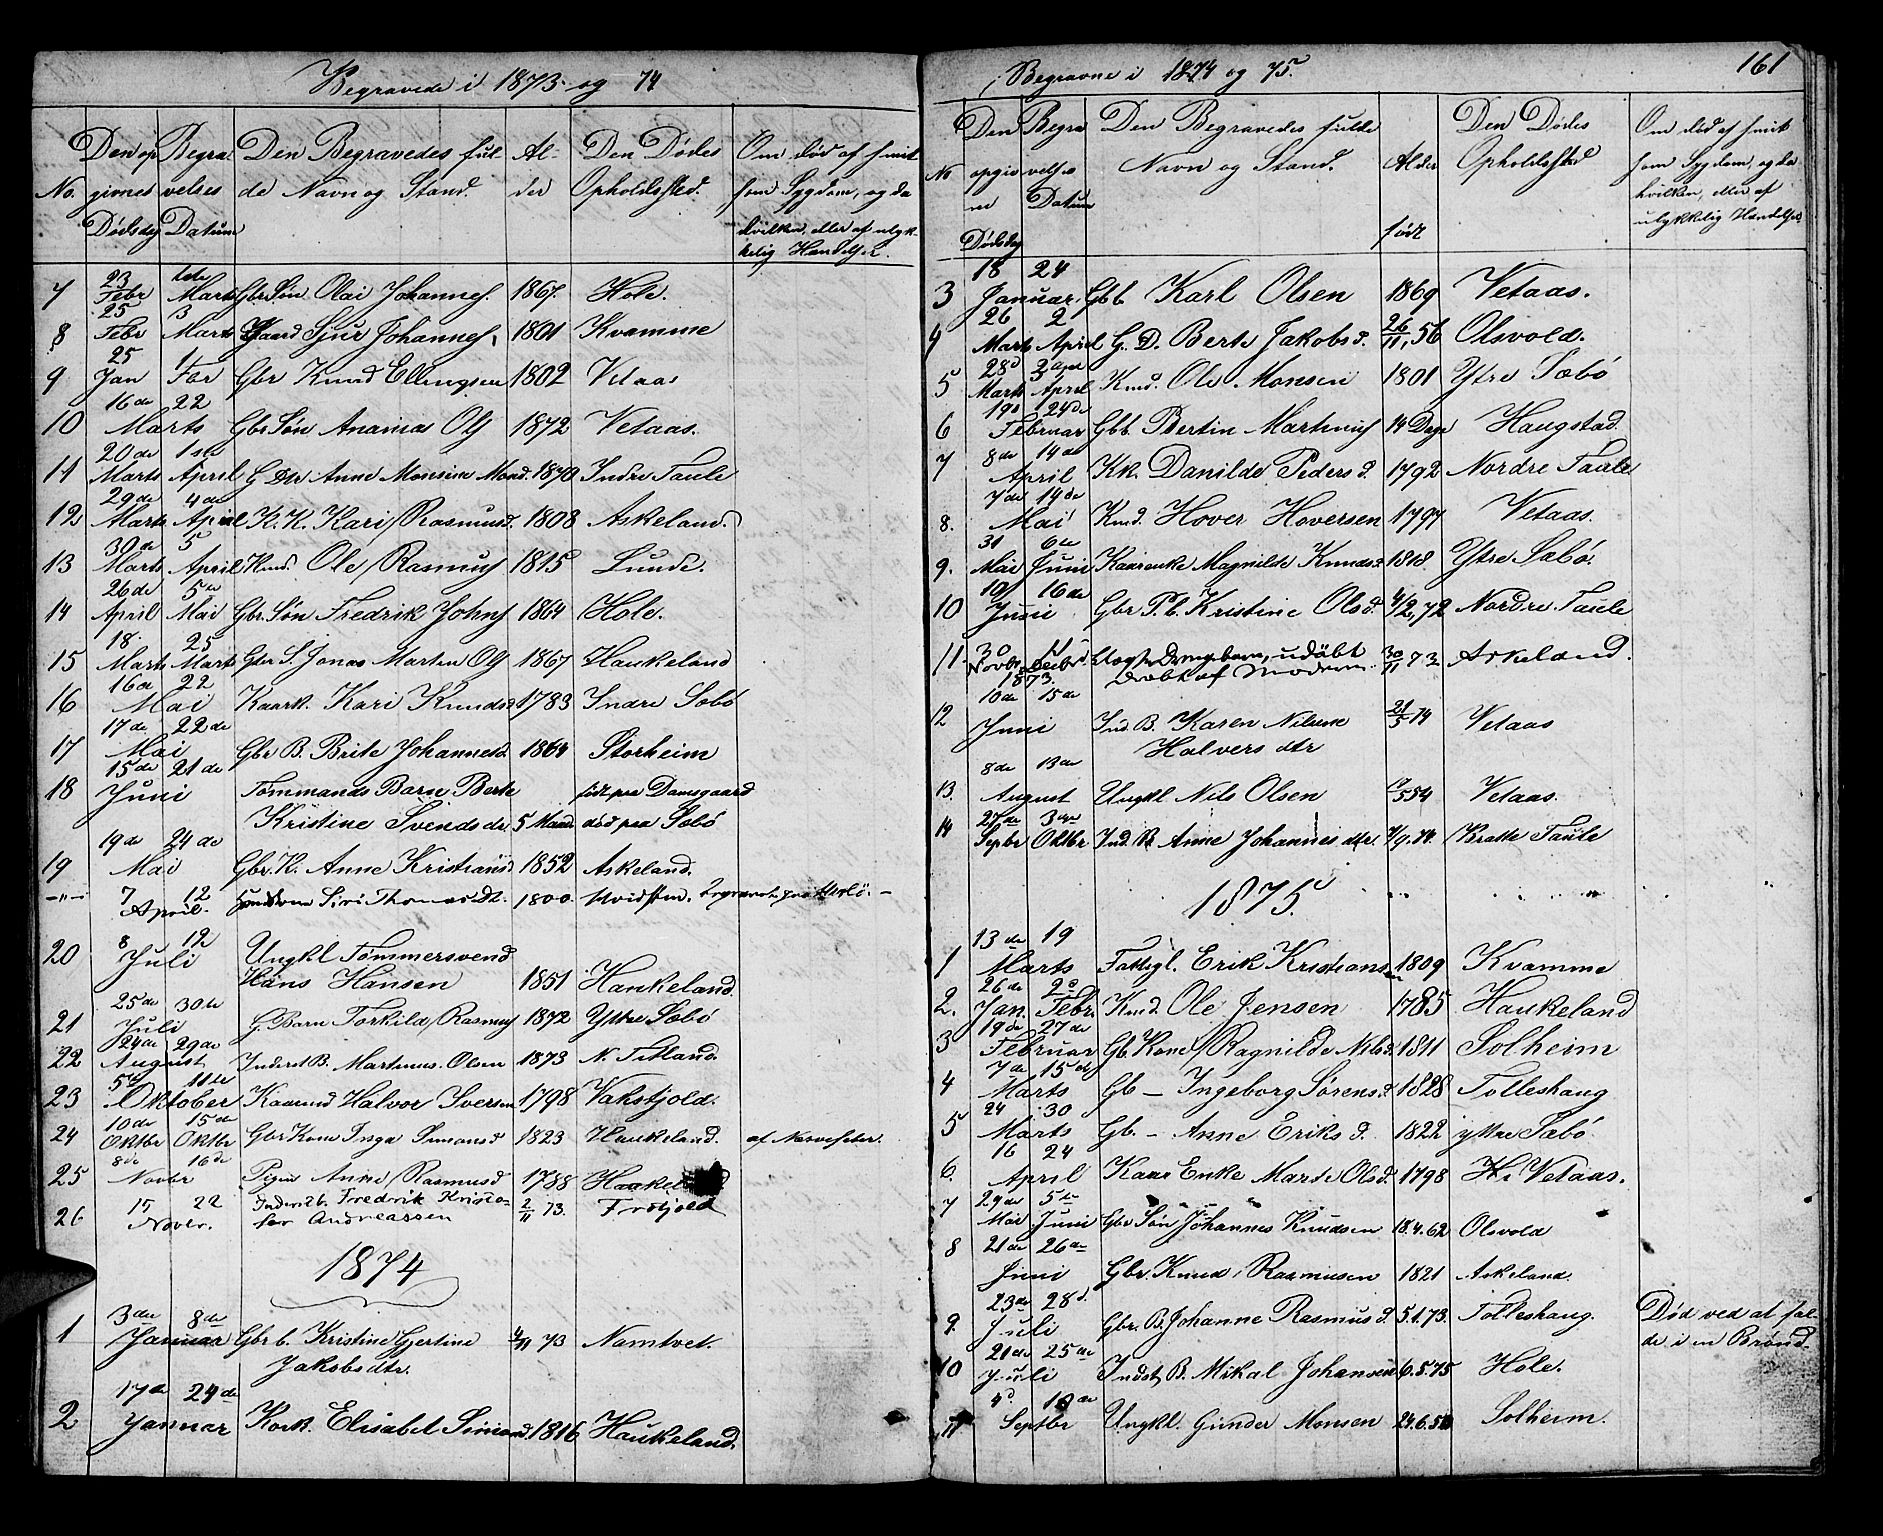 Begravede i 1873 og 74
No.
Den op givnes Dødsdag
Begravelses Datum
Den Begravedes fulde Navn og Stand.
Alder
Den Dødes Opholdssted.
Om død af smitsom Sygdom, og da hvilken, eller af ulykkelig Handelse.
7 23 Febr 1ste Marts Gbr Søn Olai Johannes. 1867. Hole.
8 25 Febr 3 Marts Gaard Sjur Johannes 1801 Kvamme
9 25 Jan 1 Gbr Knud Ellingsen 1802 Vetaas
10 16de 22 Marts Gbr Søn Ananias Ols 1872 Vetaas.
11 20de Marts 1ste April G Dtr Anne Monsine Monsd. 1870 Indre Taule
12 29de Marts 4de April K. K. Kari Rasmusd. 1808 Askeland.
13 30de Marts 5 April Kmd. Ole Rasmus 1815 Lunde.
14 26de April 5te Mai Gbr. Søn Fredrik Johns 1864 Hole.
15 18. Marts 25 Marts Gbr S. Jonas Marten Ols 1867 Haukeland
16 16de 22 Mai Kaark. Kari Knudsd 1783 Indre Sæbø
17 17de 22de Mai Gbr B. Brite Johannesd. 1864 Storheim
18 15de 21de Juni Tømmands Barn Berte født paa Damsgaard
Kristine Svends dr 5 Maan død paa Sæbø
19 19de 24de Mai Gbr. K. Anne Kristiansd 1852 Askeland.
-"- 7 12 April. Siri Thomasdt. 1800. Hvidsten.
20 8 12 Juli Ungkl Tømmersvend
Hans Hansen 1851 Haukeland.
21 25de 30te Juli G. Barn Torkild Rasmus 1872 Yttre Sæbø
22 24de 29de August Inderst B. Martinus Olsen 1873 N. Titland.
23 5te 11te Oktober Kaarmd Halvor Sversen 1798 Vakstjold.
24 10de Oktbr 15de Oktbr Gbr Kone Inga Simonsd 1823 Haukeland. af Nervefeber.
25 8de 16de Novbr Pigen Anne Rasmusd 1788 Haukeland
26 15 22 Novbr. Inderstb. Fredrik Kristo-
fer Andreassen 2/11 73. Frotjold
1874
1 3die 8de Januar Gbr b. Kristine Gjertine 4/11 73 Namtvet.
Jakobsdtr.
2 17de 24de Januar Kark. Elisabet Simonsd. 1816 Haukeland.
Begravne i 1874 og 75. 161
No
Den opgivne Dødsdag
Begravelses Datum
Den Begravedes fulde Navn og Stand.
Alder født
Den Dødes Opholdssted
Om død af smitsom Sygdom, og da hvilken, eller af ulykkelig Handelse.
3 18 24 Januar Gbb Karl Olsen 1869 Vetaas.
4 26 Marts 2 April G. D. Berte Jakobsd. 26/11, 56 Olsvold.
5 28d Marts 3 April Kmd. Ole Monsen 1801 Ytre Sæbø
6 19d 24de Februar Gbb. Bertin Martinus 14 Dage Haugstad.
7 8de 14de April Kk. Danilde Peders d. 1792 Nordre Taule
8. 7de 14de Mai Kmd. Hover Hoversen 1797 Vetaas.
9. 31 Mai 6te Juni Kaarenke Magnilde Knudsd 1818 Ytre Sæbø.
10 10 16de Juni Gbr P. b. Kristine Olsd. 4/2, 72 Nordre Taule
11. 30 Novbr Decbr 1873. Drengebarn, udøbt
Døbt af Moderen. 30/11 73 Askeland.
12 10de 15de Juni Ind. B. Karen Nilsine 21/5 74 Vetaas
Halvers dtr
13. 8de 13de August Ungkl Nils Olsen Vetaas.
14 27de Septbr 3die Oktbr Ind. B. Anne Johannes dtr. 7/9. 74. Bratte Taule
1875.
1 13de 19 Marts Fattigl. Erik Kristians 1809 Kvamme
2. 26de Jan. 2d Febr. Kmd Ole Jensen 1785 Haukeland
3 19de 27de Februar Gb. Kone Ragnilde Nilsd. 1811 Solheim
4 7de 15de Marts Gb — Ingeborg Sørensd 1828 Tolleshaug
5 24 30 Marts Gb. — Anne Eriks d. 1822 yttre Sæbø.
6. 16 24 April Kaar Enke Marte Olsd. 1798 Vetaas.
7 29de Mai 5te Juni Gbr Søn Johannes Knudsen 18.4.62 Olsvold
8 21de 26de Juni Gbr. Knud Rasmusen 1821 Askeland.
9. 23de 28d. Juli Gbr. B. Johanne Rasmus d. 5.1.73. Tolleshaug. Død ved at fal-
de i en Brønd.
10 21de 25de Juli Indst. B. Mikal Johansen 6.5.75 Hole.
11 4d 10de Septbr Ungkl. Gunder Monsen 24.6.50 Solheim.